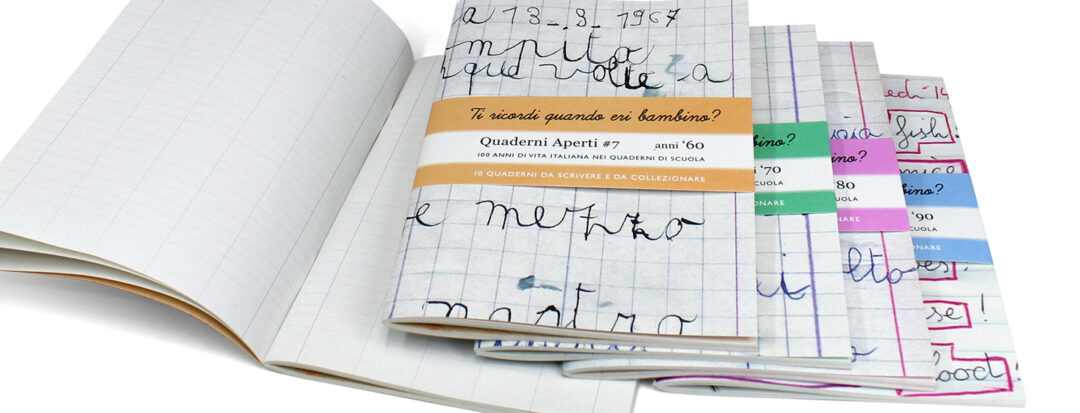 a 13_9_1967
mpito
que volte -a
Ti ricordi quando eri bambino?
Quaderni Aperti #7 anni '60
100 ANNI DI VITA ITALIANA NEI QUADERNI DI SCUOLA
10 QUADERNI DA SCRIVERE E DA COLLEZIONARE
e mezzo
bino?
'70
SCUOLA
ONARE
bino?
80
SCUOLA
ONARE
lto
fish!
bino?
'90
SCUOLA
ONARE
se!
lood!